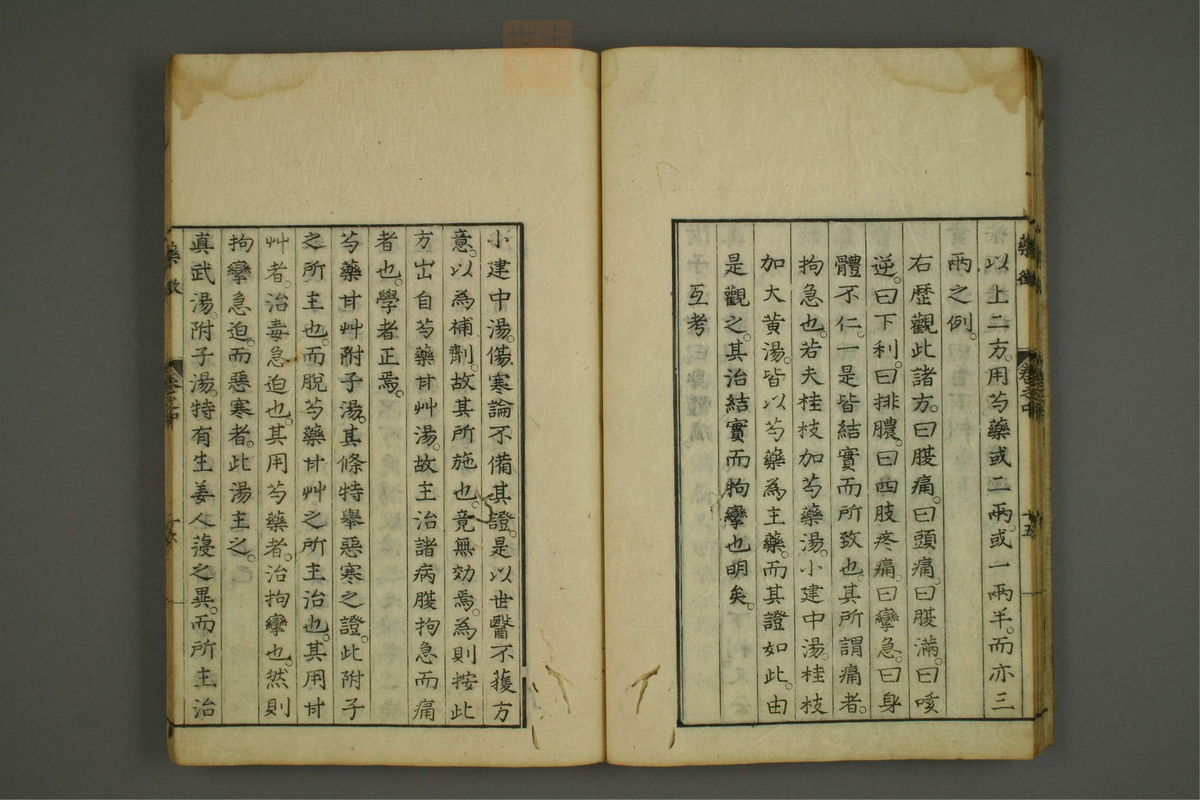 以上二方。用芍藥或二兩。或一兩半。而亦三
兩之例。
右歷觀此諸方。曰腹痛。曰頭痛。曰腹滿。曰咳
逆。曰下利。曰排膿。曰四肢疼痛。曰攣急。曰身
體不仁。一是皆結實而所致也。其所謂痛者。
拘急也。若夫桂枝加芍藥湯。小建中湯。桂枝
加大黃湯。皆以芍藥為主藥。而其證如此。由
是觀之。其治結實而拘攣也明矣。
互考
藥徵
卷之中
十五
小建中湯。傷寒論不備其證。是以世醫不獲方
意。以為補劑。故其所施也。竟無効焉。為則按此
方出自芍藥甘艸湯。故主治諸病腹拘急而痛
者也。學者正焉。
芍藥甘艸附子湯。其條特舉惡寒之證。此附子
之所主也。而脫芍藥甘艸之所主治也。其用甘
艸者。治毒急迫也。其用芍藥者。治拘攣也。然則
拘攣急迫。而惡寒者。此湯主之。
真武湯。附子湯。特有生姜人葠之異。而所主治
藥徵
卷之中